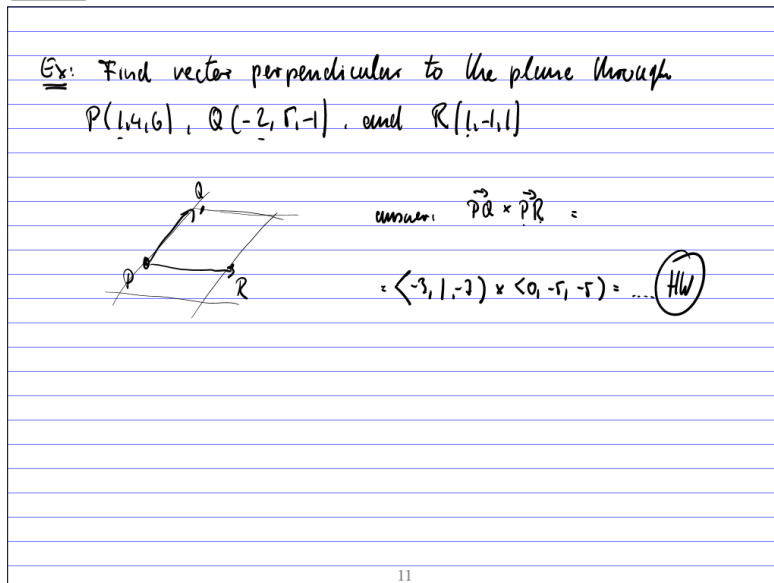 Ex: Find vector perpendicular to the plane through
P(1,4,6), Q(-2,5,-1), and R(1,-1,1)
Q
P
R
answer: PQ⃗ × PR⃗ =
= <-3, 1, -7> × <0, -5, -5> = ..... HW
11